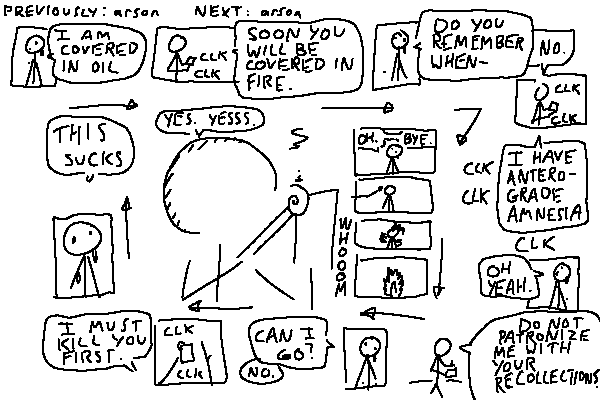 PREVIOUSLY: arson
NEXT: arson
I AM
COVERED
IN OIL
CLK
CLK
SOON YOU
WILL BE
COVERED IN
FIRE.
DO YOU
REMEMBER
WHEN-
NO.
CLK
CLK
I HAVE
ANTERO-
GRADE
AMNESIA
CLK
CLK
CLK
OH
YEAH.
DO NOT
PATRONIZE
ME WITH
YOUR
RECOLLECTIONS
CAN I
GO?
NO.
CLK
CLK
I MUST
KILL YOU
FIRST.
THIS
SUCKS
YES. YESSS.
OH.
BYE.
WHOOM